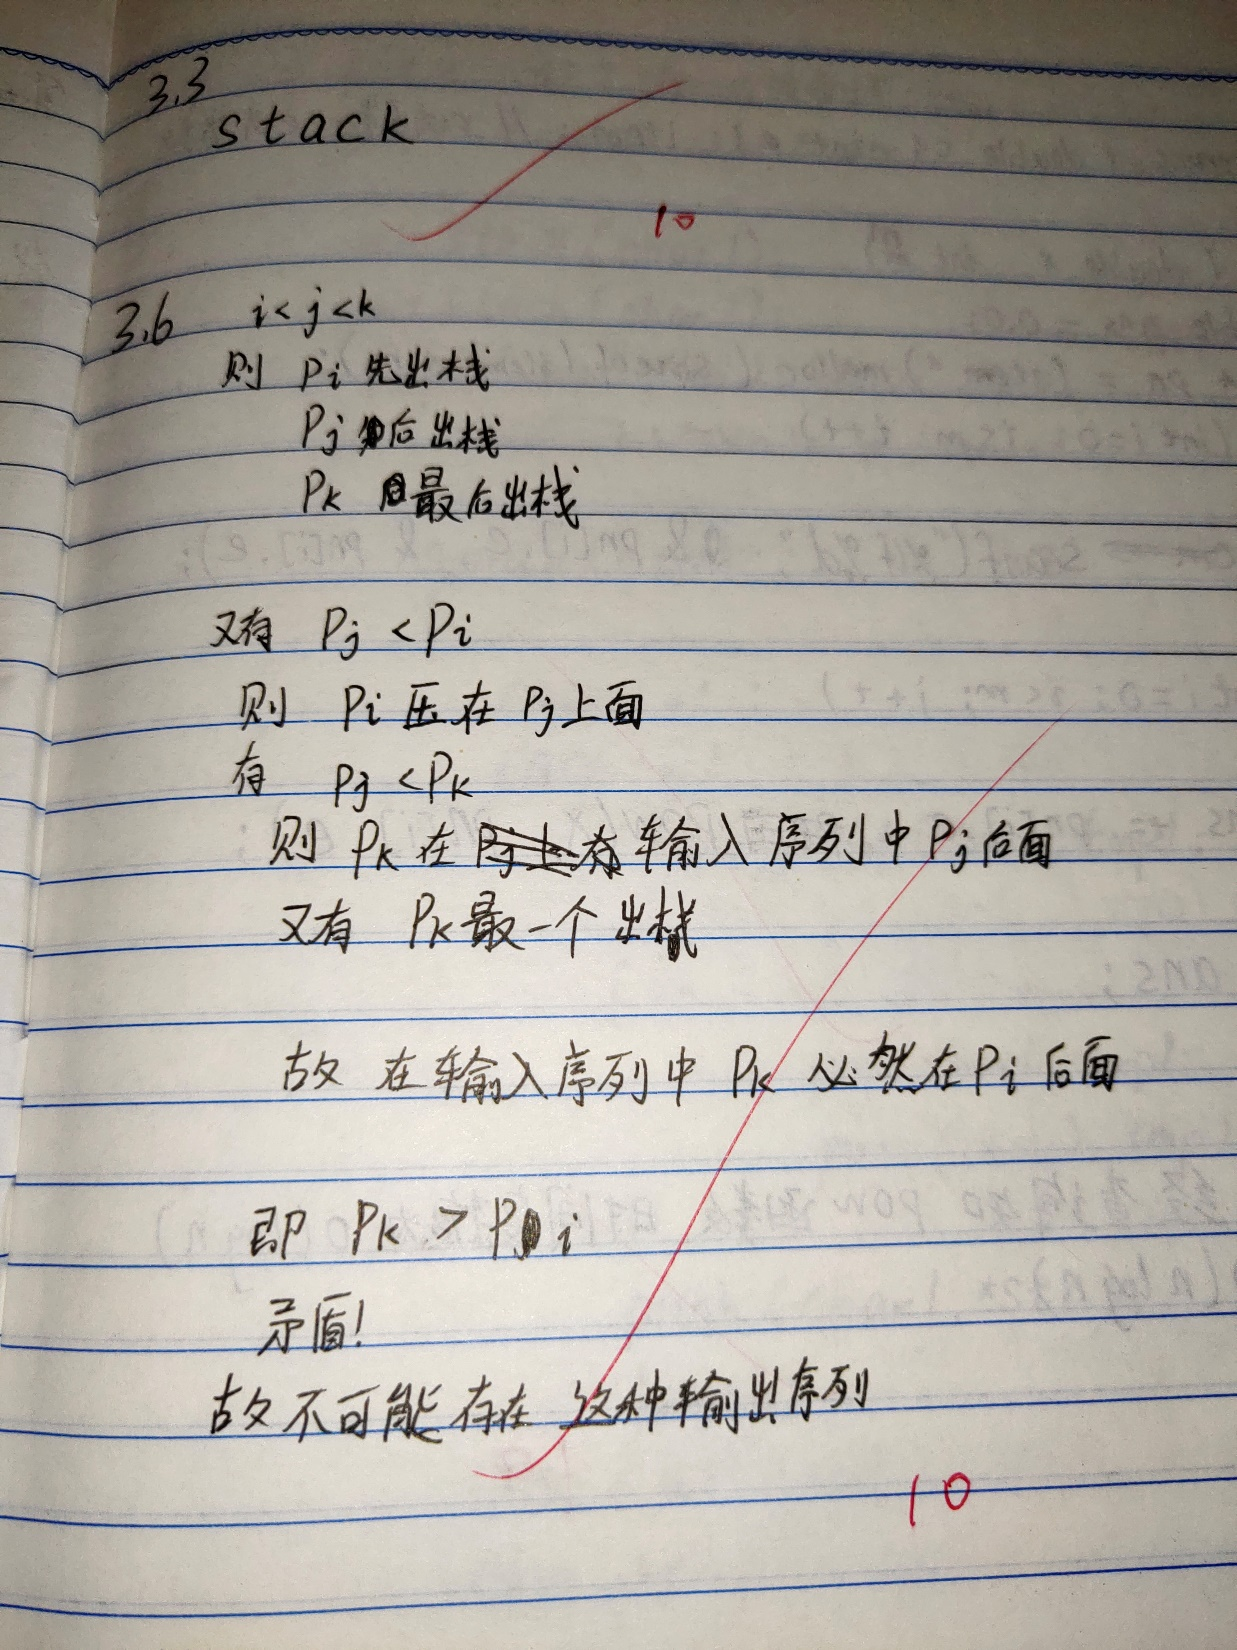 3.3
stack
10
3.6 i<j<k
则 Pi 先出栈
Pj 后出栈
Pk 最后出栈
又有 Pj <Pi
则 Pi 压在 Pj上面
有 Pj <Pk
则 Pk 在 输入序列中Pj后面
又有 Pk最一个出栈
故 在输入序列中 Pk 必然在Pi后面
即 Pk > Pi
矛盾!
故不可能存在 这种输出序列
10